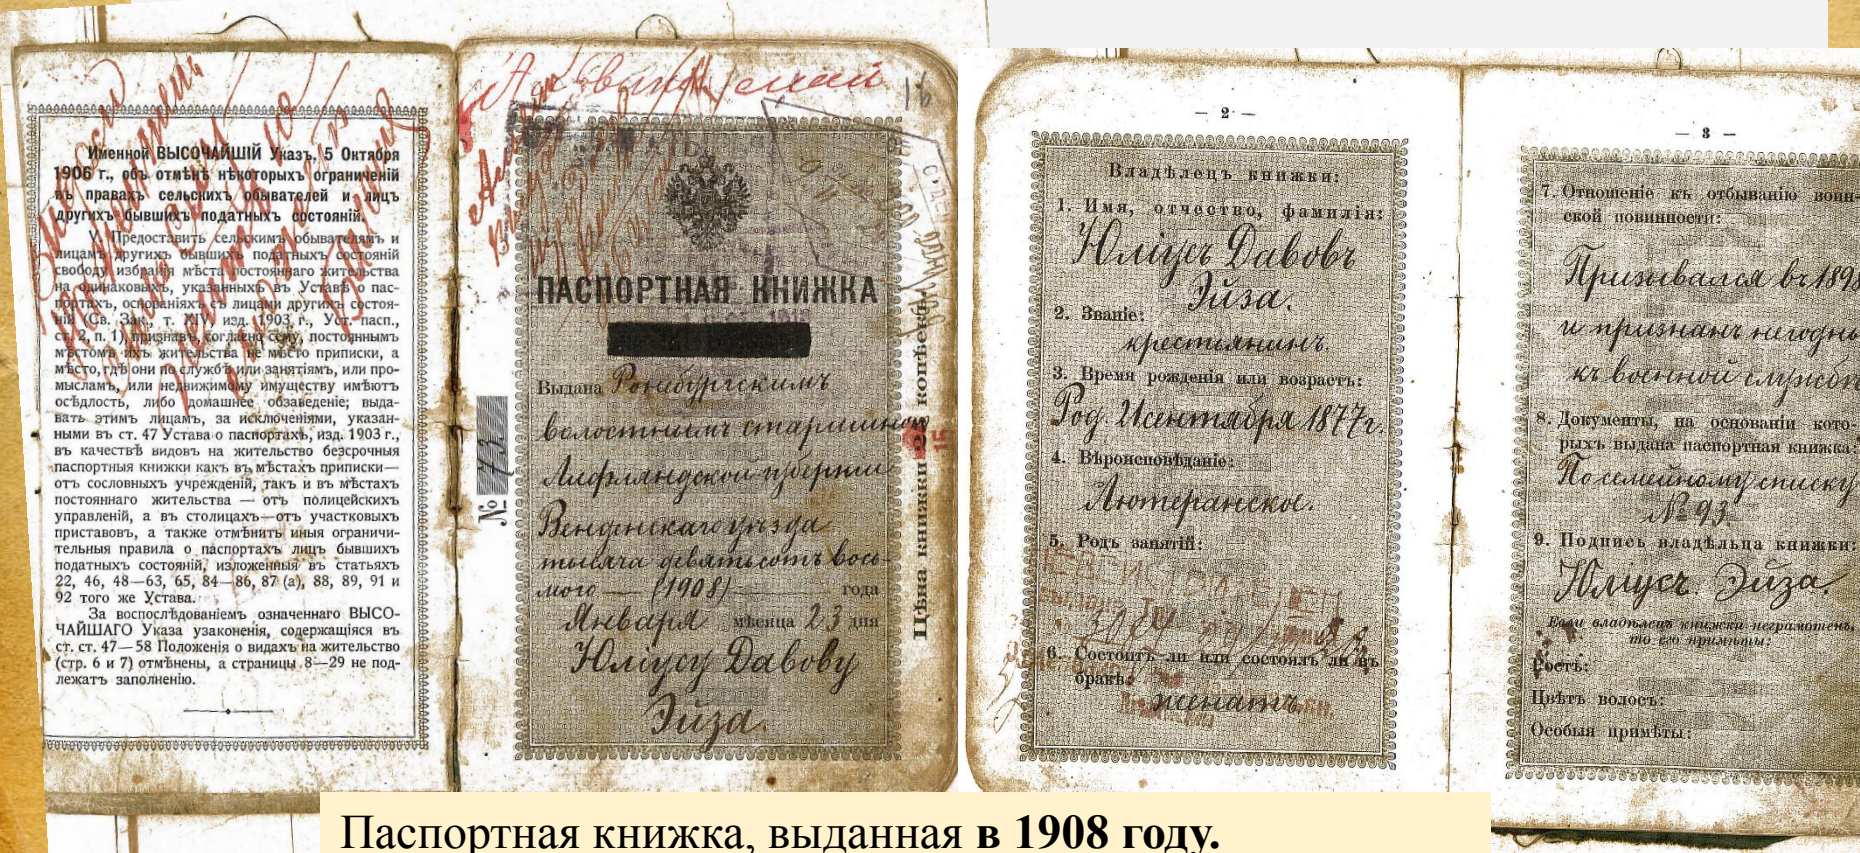 Именной ВЫСОЧАЙШІЙ Указъ, 5 Октября
1906 г., объ отмѣнѣ нѣкоторыхъ ограниченій
въ правахъ сельскихъ обывателей и лицъ
другихъ бывшихъ податныхъ состояній.
V. Предоставить сельскимъ обывателямъ и
лицамъ другихъ бывшихъ податныхъ состояній
свободу избранія мѣста постояннаго жительства
на одинаковыхъ, указанныхъ въ Уставѣ о пас-
портахъ, основаніяхъ съ лицами другихъ состоя-
ній (Св. Зак., т. XIV, изд. 1903 г., Уст. пасп.,
ст. 2, п. 1), признавъ, согласно сему, постояннымъ
мѣстомъ ихъ жительства не мѣсто приписки, а
мѣсто, гдѣ они по службѣ или занятіямъ, или про-
мысламъ, или недвижимому имуществу имѣютъ
осѣдлость, либо домашнее обзаведеніе; выда-
вать этимъ лицамъ, за исключеніями, указан-
ными въ ст. 47 Устава о паспортахъ, изд. 1903 г.,
въ качествѣ видовъ на жительство безсрочныя
паспортныя книжки какъ въ мѣстахъ приписки—
отъ сословныхъ учрежденій, такъ и въ мѣстахъ
постояннаго жительства — отъ полицейскихъ
управленій, а въ столицахъ—отъ участковыхъ
приставовъ, а также отмѣнить иныя ограничи-
тельныя правила о паспортахъ лицъ бывшихъ
податныхъ состояній, изложенныя въ статьяхъ
22, 46, 48—63, 65, 84—86, 87 (а), 88, 89, 91 и
92 того же Устава.
За воспослѣдованіемъ означеннаго ВЫСО-
ЧАЙШАГО Указа узаконенія, содержащіяся въ
ст. ст. 47—58 Положенія о видахъ на жительство
(стр. 6 и 7) отмѣнены, а страницы 8—29 не под-
лежатъ заполненію.
16
ПАСПОРТНАЯ КНИЖКА
Выдана Ронебургскимъ
волостнымъ старшиною
Лифляндской губерніи
Венденскаго уѣзда
тысяча девятьсотъ вось-
маго — (1908) — года
Января мѣсяца 23 дня
Юліусу Давову
Эйза.
№ 73
Цѣна книжки 15 копѣекъ.
— 2 —
Владѣлецъ книжки:
1. Имя, отчество, фамилія:
Юліусъ Давовъ
Эйза.
2. Званіе:
крестьянинъ.
3. Время рожденія или возрастъ:
Род. 21 сентября 1877 г.
4. Вѣроисповѣданіе:
Лютеранское.
5. Родъ занятій:
6. Состоитъ ли или состоялъ ли въ
бракѣ:
женатъ.
— 3 —
7. Отношеніе къ отбыванію воин-
ской повинности:
Призывался въ 1898
и признанъ негоднъ
къ военной службѣ
8. Документы, на основаніи кото-
рыхъ выдана паспортная книжка:
По семейному списку
№ 93
9. Подпись владѣльца книжки:
Юліусъ Эйза.
Если владѣлецъ книжки неграмотенъ,
то его примѣты:
Ростъ:
Цвѣтъ волосъ:
Особыя примѣты:
Паспортная книжка, выданная в 1908 году.